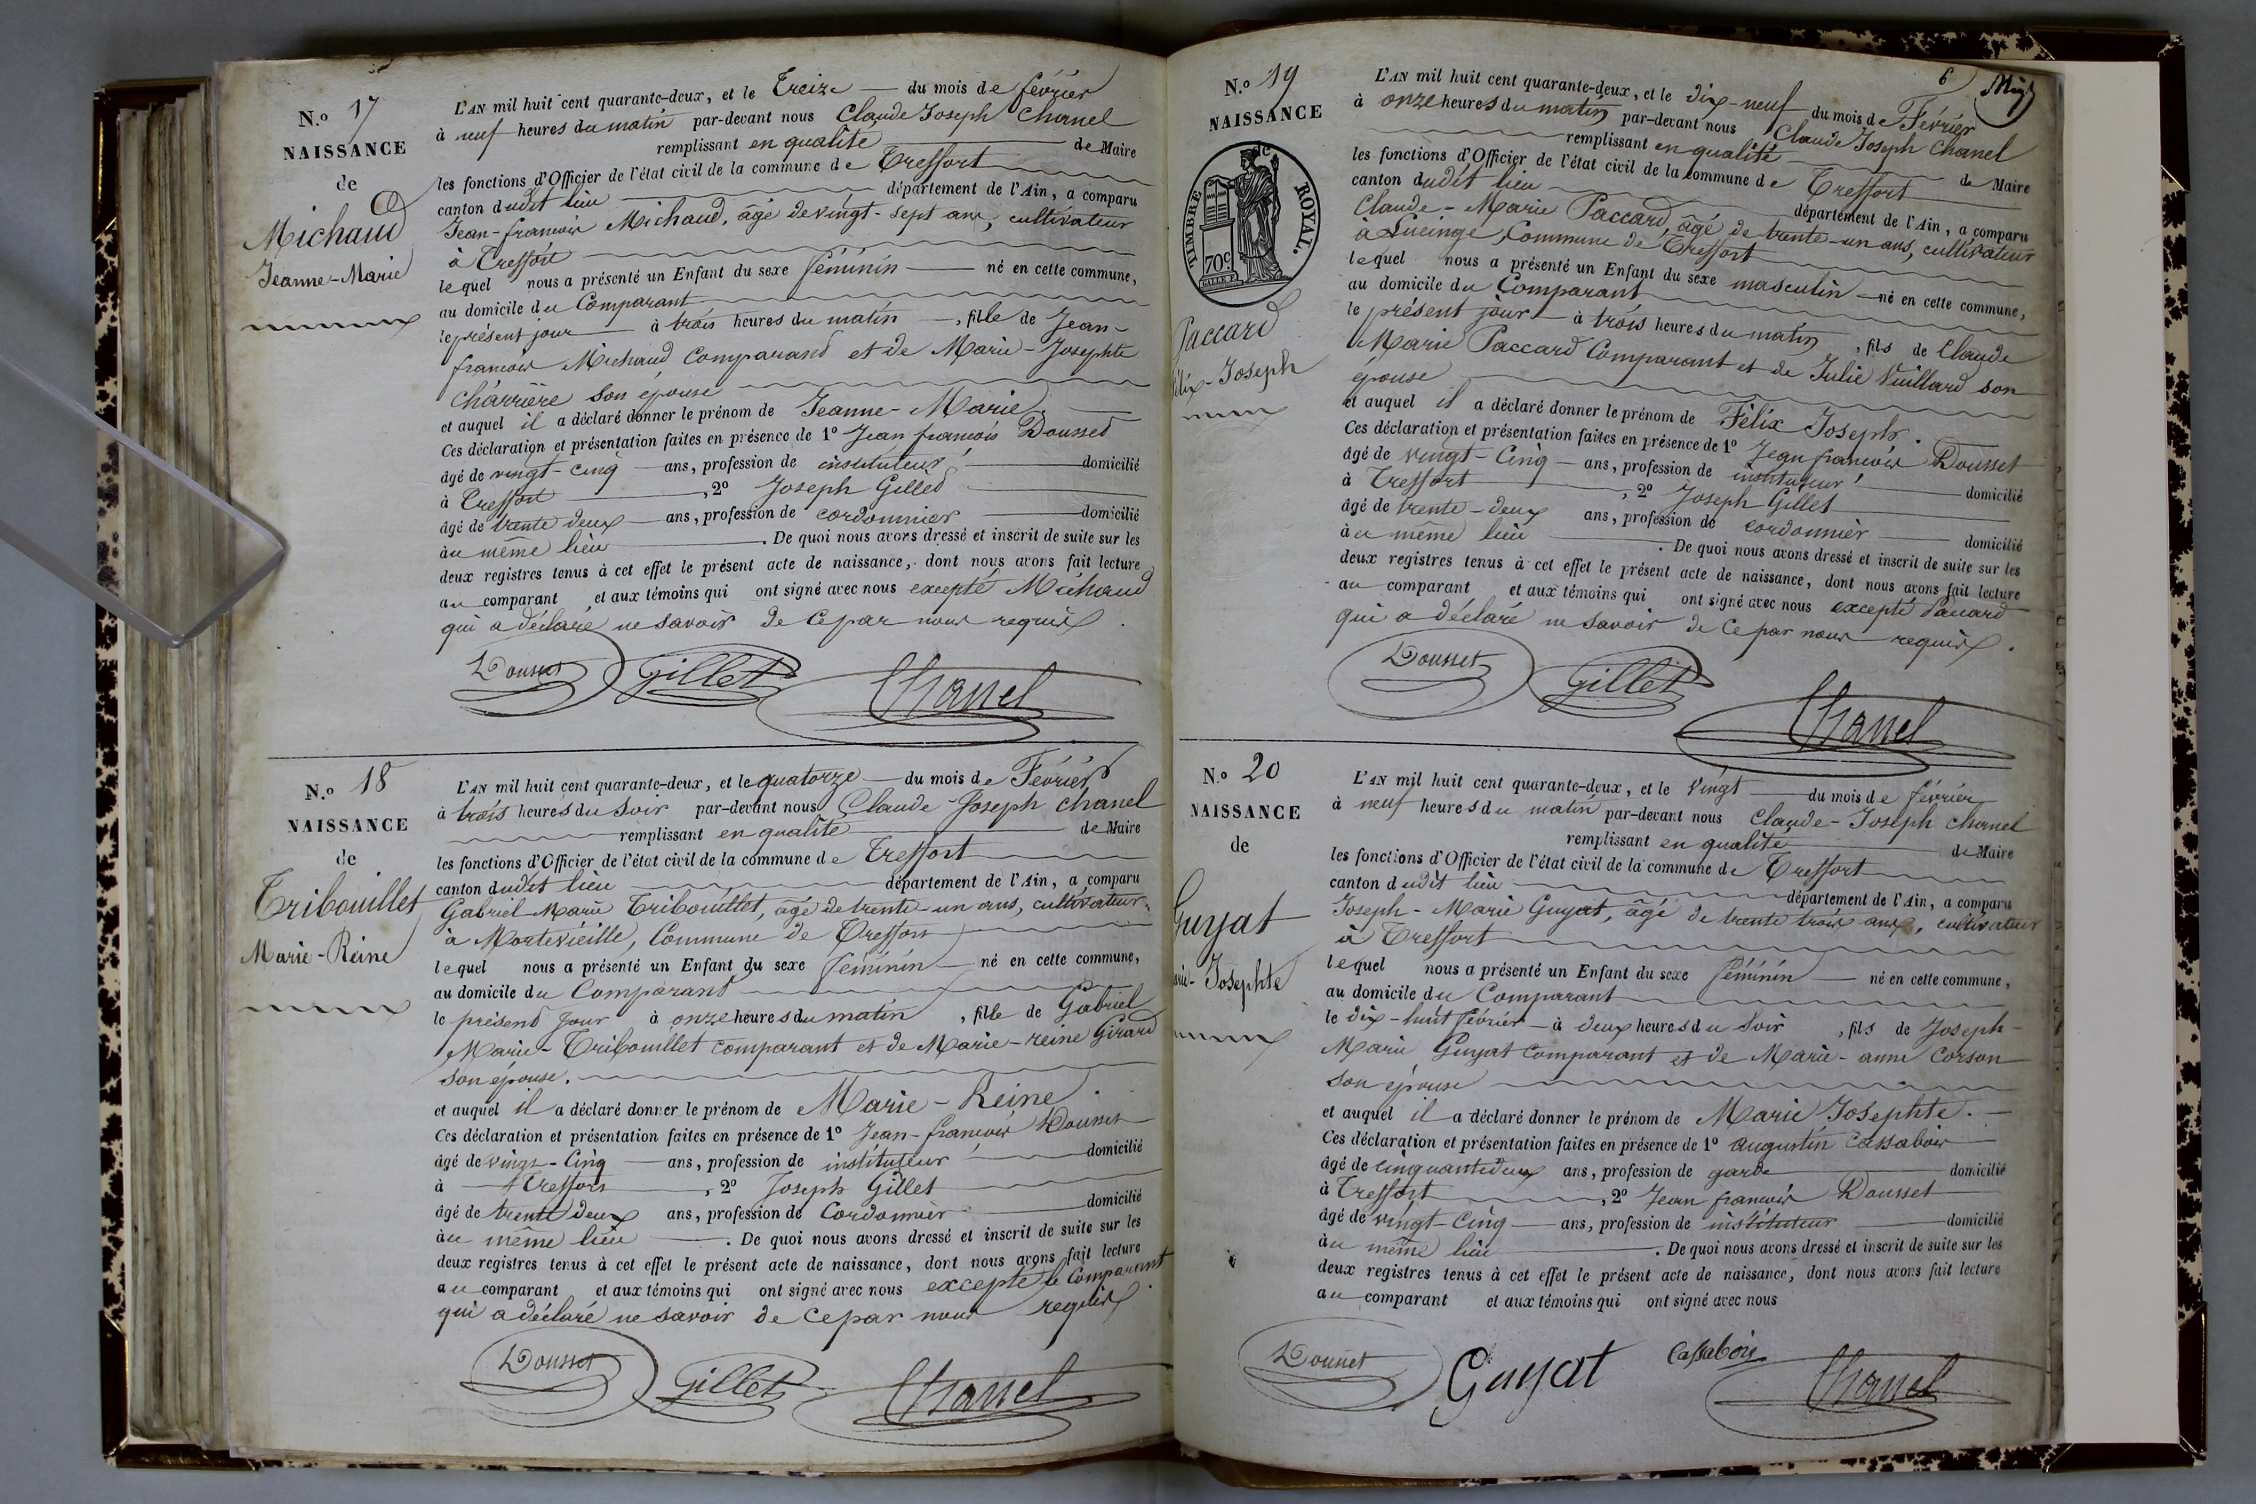 N.o 17
NAISSANCE
de
Michaud
Jeanne-Marie
L'AN mil huit cent quarante-deux, et le treize du mois de février
à neuf heures du matin par-devant nous Claude Joseph Chanel
remplissant en qualité de Maire
les fonctions d'Officier de l'état civil de la commune de Treffort
canton dudit lieu département de l'Ain, a comparu
Jean-francois Michaud, âgé de vingt-sept ans, cultivateur
à Treffort
lequel nous a présenté un Enfant du sexe féminin né en cette commune,
au domicile du Comparant
le présent jour à trois heures du matin, fille de Jean-
francois Michaud Comparant et de Marie-Josephte
Charrière son épouse
et auquel il a déclaré donner le prénom de Jeanne-Marie
Ces déclaration et présentation faites en présence de 1o Jean francois Dousset
âgé de vingt-cinq ans, profession de instituteur domicilié
à Treffort, 2o Joseph Gillet
âgé de trente deux ans, profession de cordonnier domicilié
au même lieu. De quoi nous avons dressé et inscrit de suite sur les
deux registres tenus à cet effet le présent acte de naissance, dont nous avons fait lecture
au comparant et aux témoins qui ont signé avec nous excepté Michaud
qui a déclaré ne savoir de ce par nous requis.
Dousset Gillet Chanel
N.o 18
NAISSANCE
de
Tribouillet
Marie-Reine
L'AN mil huit cent quarante-deux, et le quatorze du mois de Février
à trois heures du soir par-devant nous Claude Joseph Chanel
remplissant en qualité de Maire
les fonctions d'Officier de l'état civil de la commune de Treffort
canton dudit lieu département de l'Ain, a comparu
Gabriel Marie Tribouillet, âgé de trente-un ans, cultivateur
à Montevieille, Commune de Treffort
lequel nous a présenté un Enfant du sexe féminin né en cette commune,
au domicile du Comparant
le présent jour à onze heures du matin, fille de Gabriel
Marie-Tribouillet comparant et de Marie-reine Girard
son épouse.
et auquel il a déclaré donner le prénom de Marie-Reine.
Ces déclaration et présentation faites en présence de 1o Jean-francois Dousset
âgé de vingt-cinq ans, profession de instituteur domicilié
à Treffort, 2o Joseph Gillet
âgé de trente deux ans, profession de Cordonnier domicilié
au même lieu. De quoi nous avons dressé et inscrit de suite sur les
deux registres tenus à cet effet le présent acte de naissance, dont nous avons fait lecture
au comparant et aux témoins qui ont signé avec nous excepté le Comparant
qui a déclaré ne savoir de ce par nous requis.
Dousset Gillet Chanel
6
N.o 19
NAISSANCE
de
TIMBRE ROYAL.
70c
Paccard
Félix-Joseph
L'AN mil huit cent quarante-deux, et le dix-neuf du mois de Février
à onze heures du matin par-devant nous Claude Joseph Chanel
remplissant en qualité de Maire
les fonctions d'Officier de l'état civil de la commune de Treffort
canton dudit lieu département de l'Ain, a comparu
Claude-Marie Paccard, âgé de trente-un ans, cultivateur
à Lucinge, Commune de Treffort
lequel nous a présenté un Enfant du sexe masculin né en cette commune,
au domicile du Comparant
le présent jour à trois heures du matin, fils de Claude
Marie Paccard Comparant et de Julie Vuillard son
épouse
et auquel il a déclaré donner le prénom de Félix Joseph.
Ces déclaration et présentation faites en présence de 1o Jean francois Dousset
âgé de vingt-cinq ans, profession de instituteur domicilié
à Treffort, 2o Joseph Gillet
âgé de trente-deux ans, profession de cordonnier domicilié
au même lieu. De quoi nous avons dressé et inscrit de suite sur les
deux registres tenus à cet effet le présent acte de naissance, dont nous avons fait lecture
au comparant et aux témoins qui ont signé avec nous excepté Paccard
qui a déclaré ne savoir de ce par nous requis.
Dousset Gillet Chanel
N.o 20
NAISSANCE
de
Guyat
Marie-Josephte
L'AN mil huit cent quarante-deux, et le vingt du mois de février
à neuf heures du matin par-devant nous Claude-Joseph Chanel
remplissant en qualité de Maire
les fonctions d'Officier de l'état civil de la commune de Treffort
canton dudit lieu département de l'Ain, a comparu
Joseph-Marie Guyat, âgé de trente trois ans, cultivateur
à Treffort
lequel nous a présenté un Enfant du sexe féminin né en cette commune,
au domicile du Comparant
le dix-huit février à deux heures du soir, fils de Joseph-
Marie Guyat comparant et de Marie-anne Corson
son épouse
et auquel il a déclaré donner le prénom de Marie Josephte.
Ces déclaration et présentation faites en présence de 1o augustin Cassabois
âgé de cinquante deux ans, profession de garde domicilié
à Treffort, 2o Jean francois Dousset
âgé de vingt-cinq ans, profession de instituteur domicilié
au même lieu. De quoi nous avons dressé et inscrit de suite sur les
deux registres tenus à cet effet le présent acte de naissance, dont nous avons fait lecture
au comparant et aux témoins qui ont signé avec nous
Dousset Guyat Cassabois Chanel